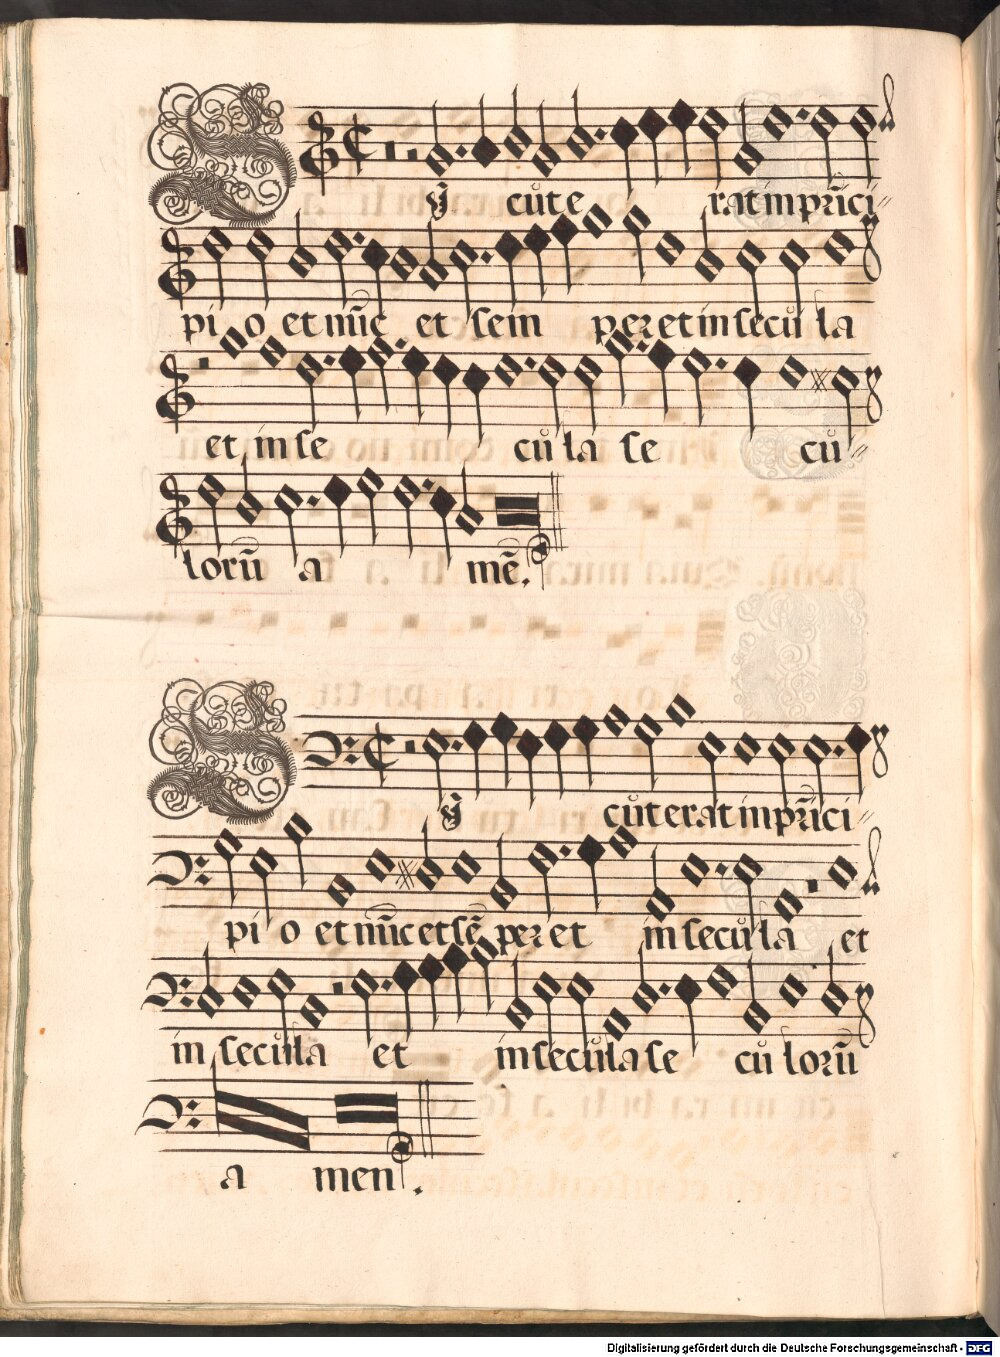 Sỹ cut e rat in prīci
pi o et nūc et sem per et in secu la
et in se cu la se cu
lorū a mē.
Sỹ cut erat in prīci
pi o et nūc et sē per et in secu la et
in secula et in secula se cu lorū
a men.
Digitalisierung gefördert durch die Deutsche Forschungsgemeinschaft - DFG